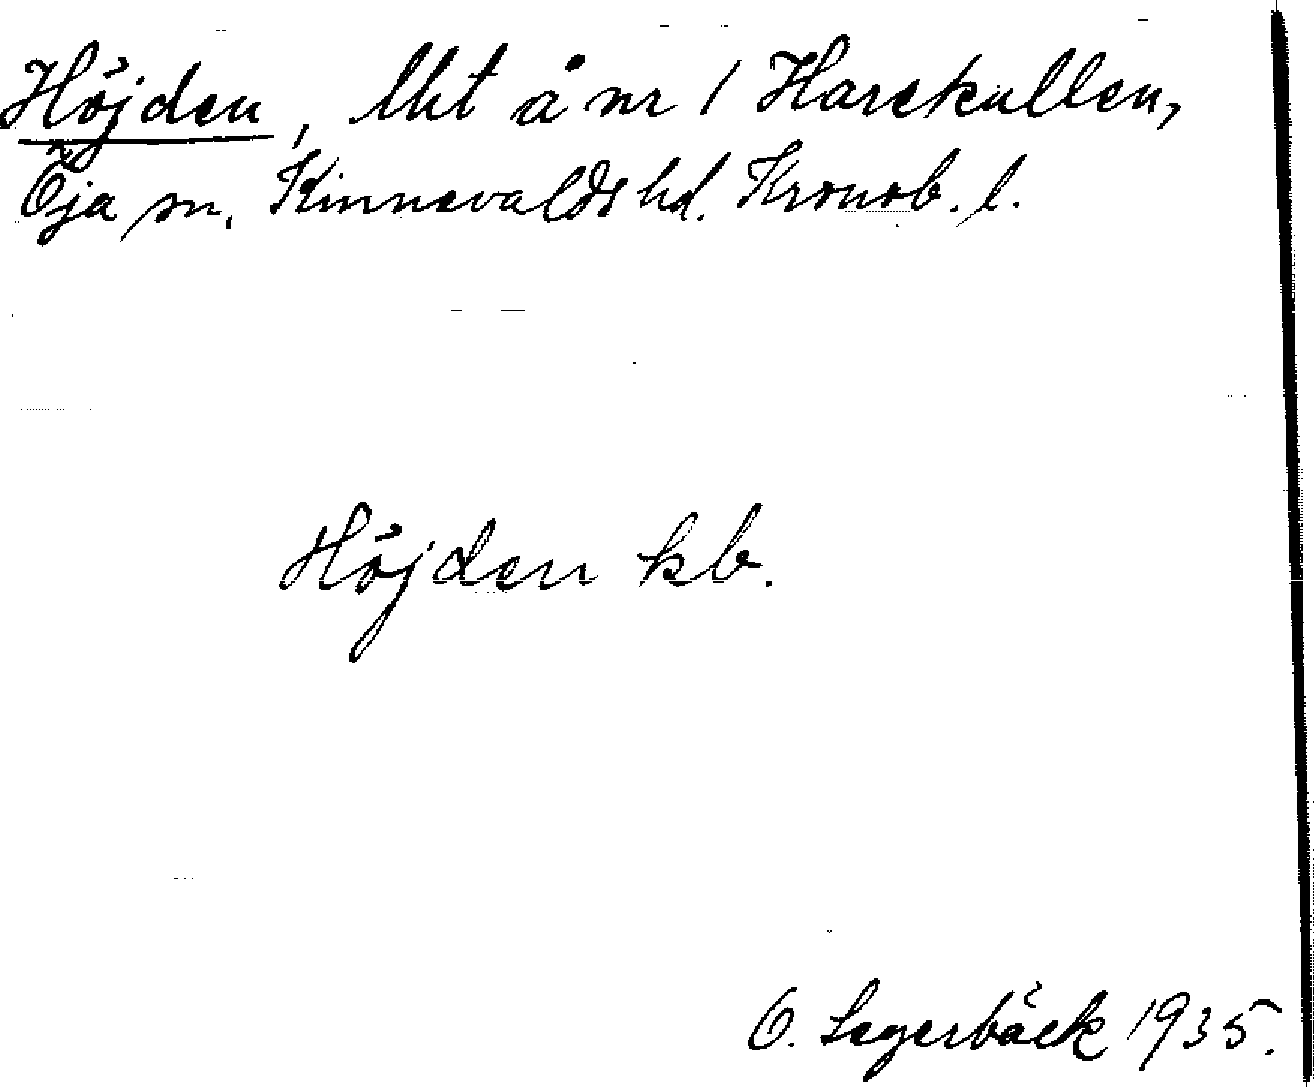 Höjden, lht å nr 1 Harekullen,
Öja sn. Kinnevalds hd. Kronob. l.
Höjden kb.
O. Segerbäck 1935.